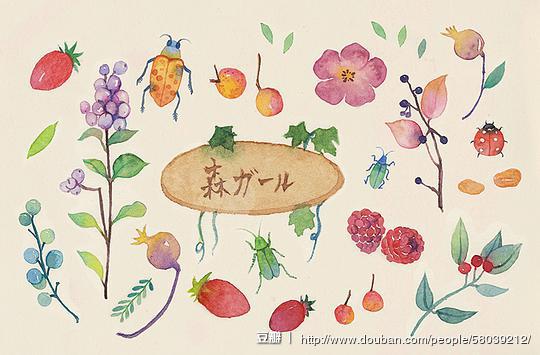 森ガール
豆瓣 | http://www.douban.com/people/58039212/